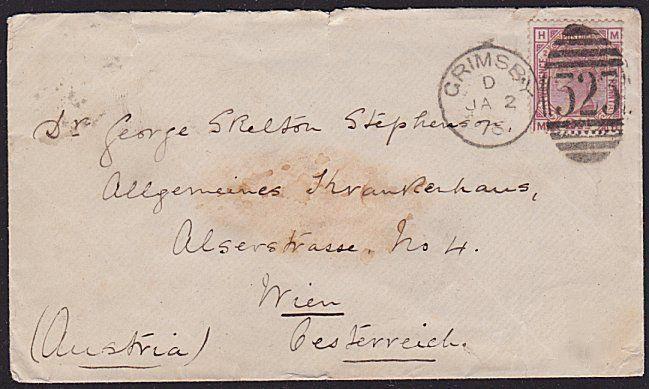 GRIMSBY
D
JA 2
76
H M
323
M
Dr George Skelton Stephenson.
Allgemeines Krankenhaus,
Alserstrasse. No 4.
Wien
(Austria) Oesterreich.